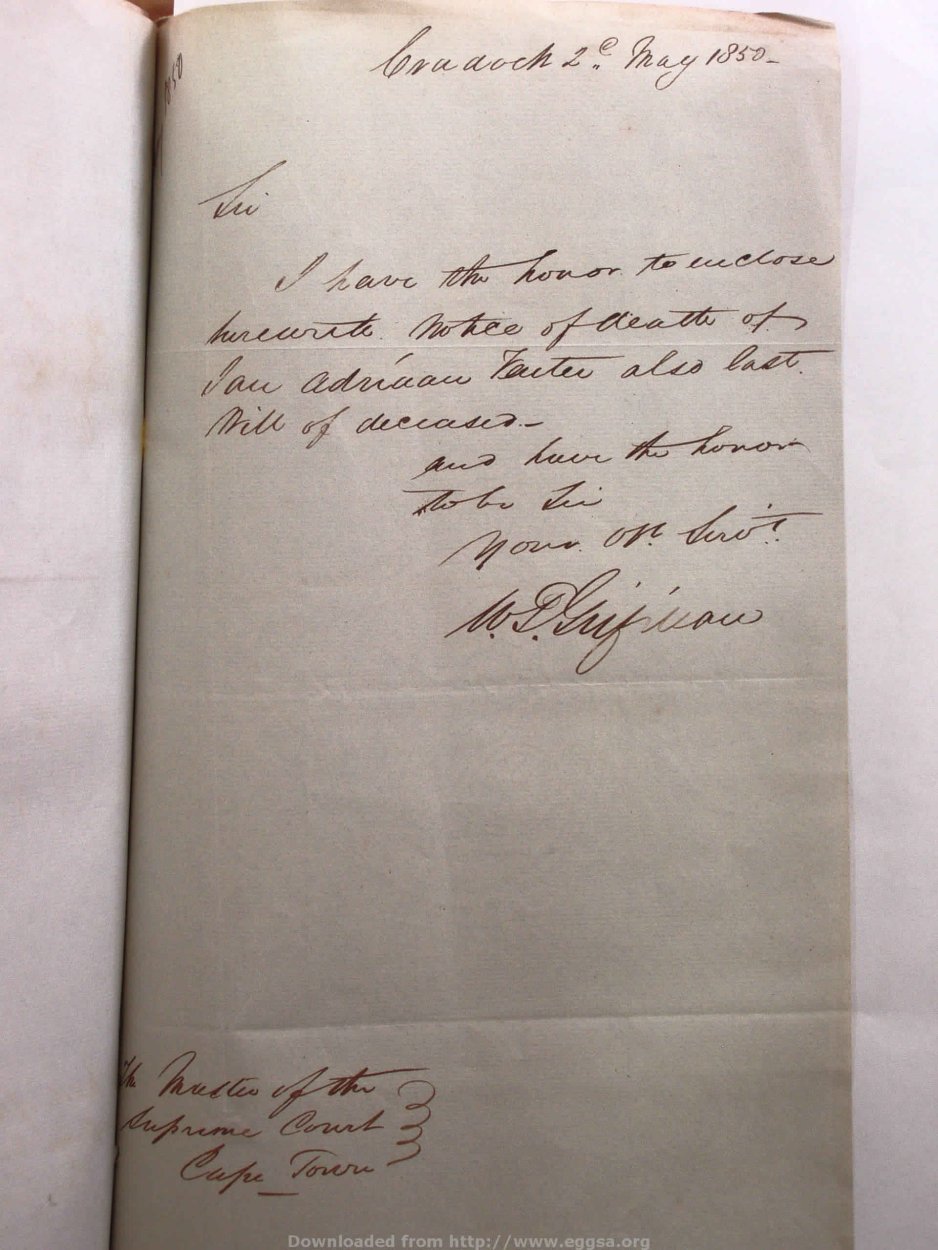 1850
Cradock 2d. May 1850-
Sir
I have the honor to enclose
herewith Notice of death of
Jan Adriaan Venter also last
Will of deceased-
and have the honor
to be Sir
Your Obt. Servt.
W. P. Grijsman
The Master of the
Supreme Court
Cape Town
Downloaded from http://www.eggsa.org